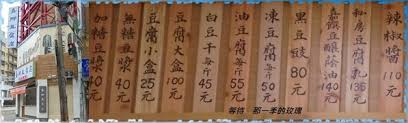 辣椒醬110元
私房豆腐乳135元
蔭油140元
黑豆豉80元
凍豆腐每斤50元
油豆腐每斤55元
白豆干每斤45元
豆腐大盒100元
豆腐小盒25元
無糖豆漿40元
加糖豆漿40元
等待 那一季的玫瑰